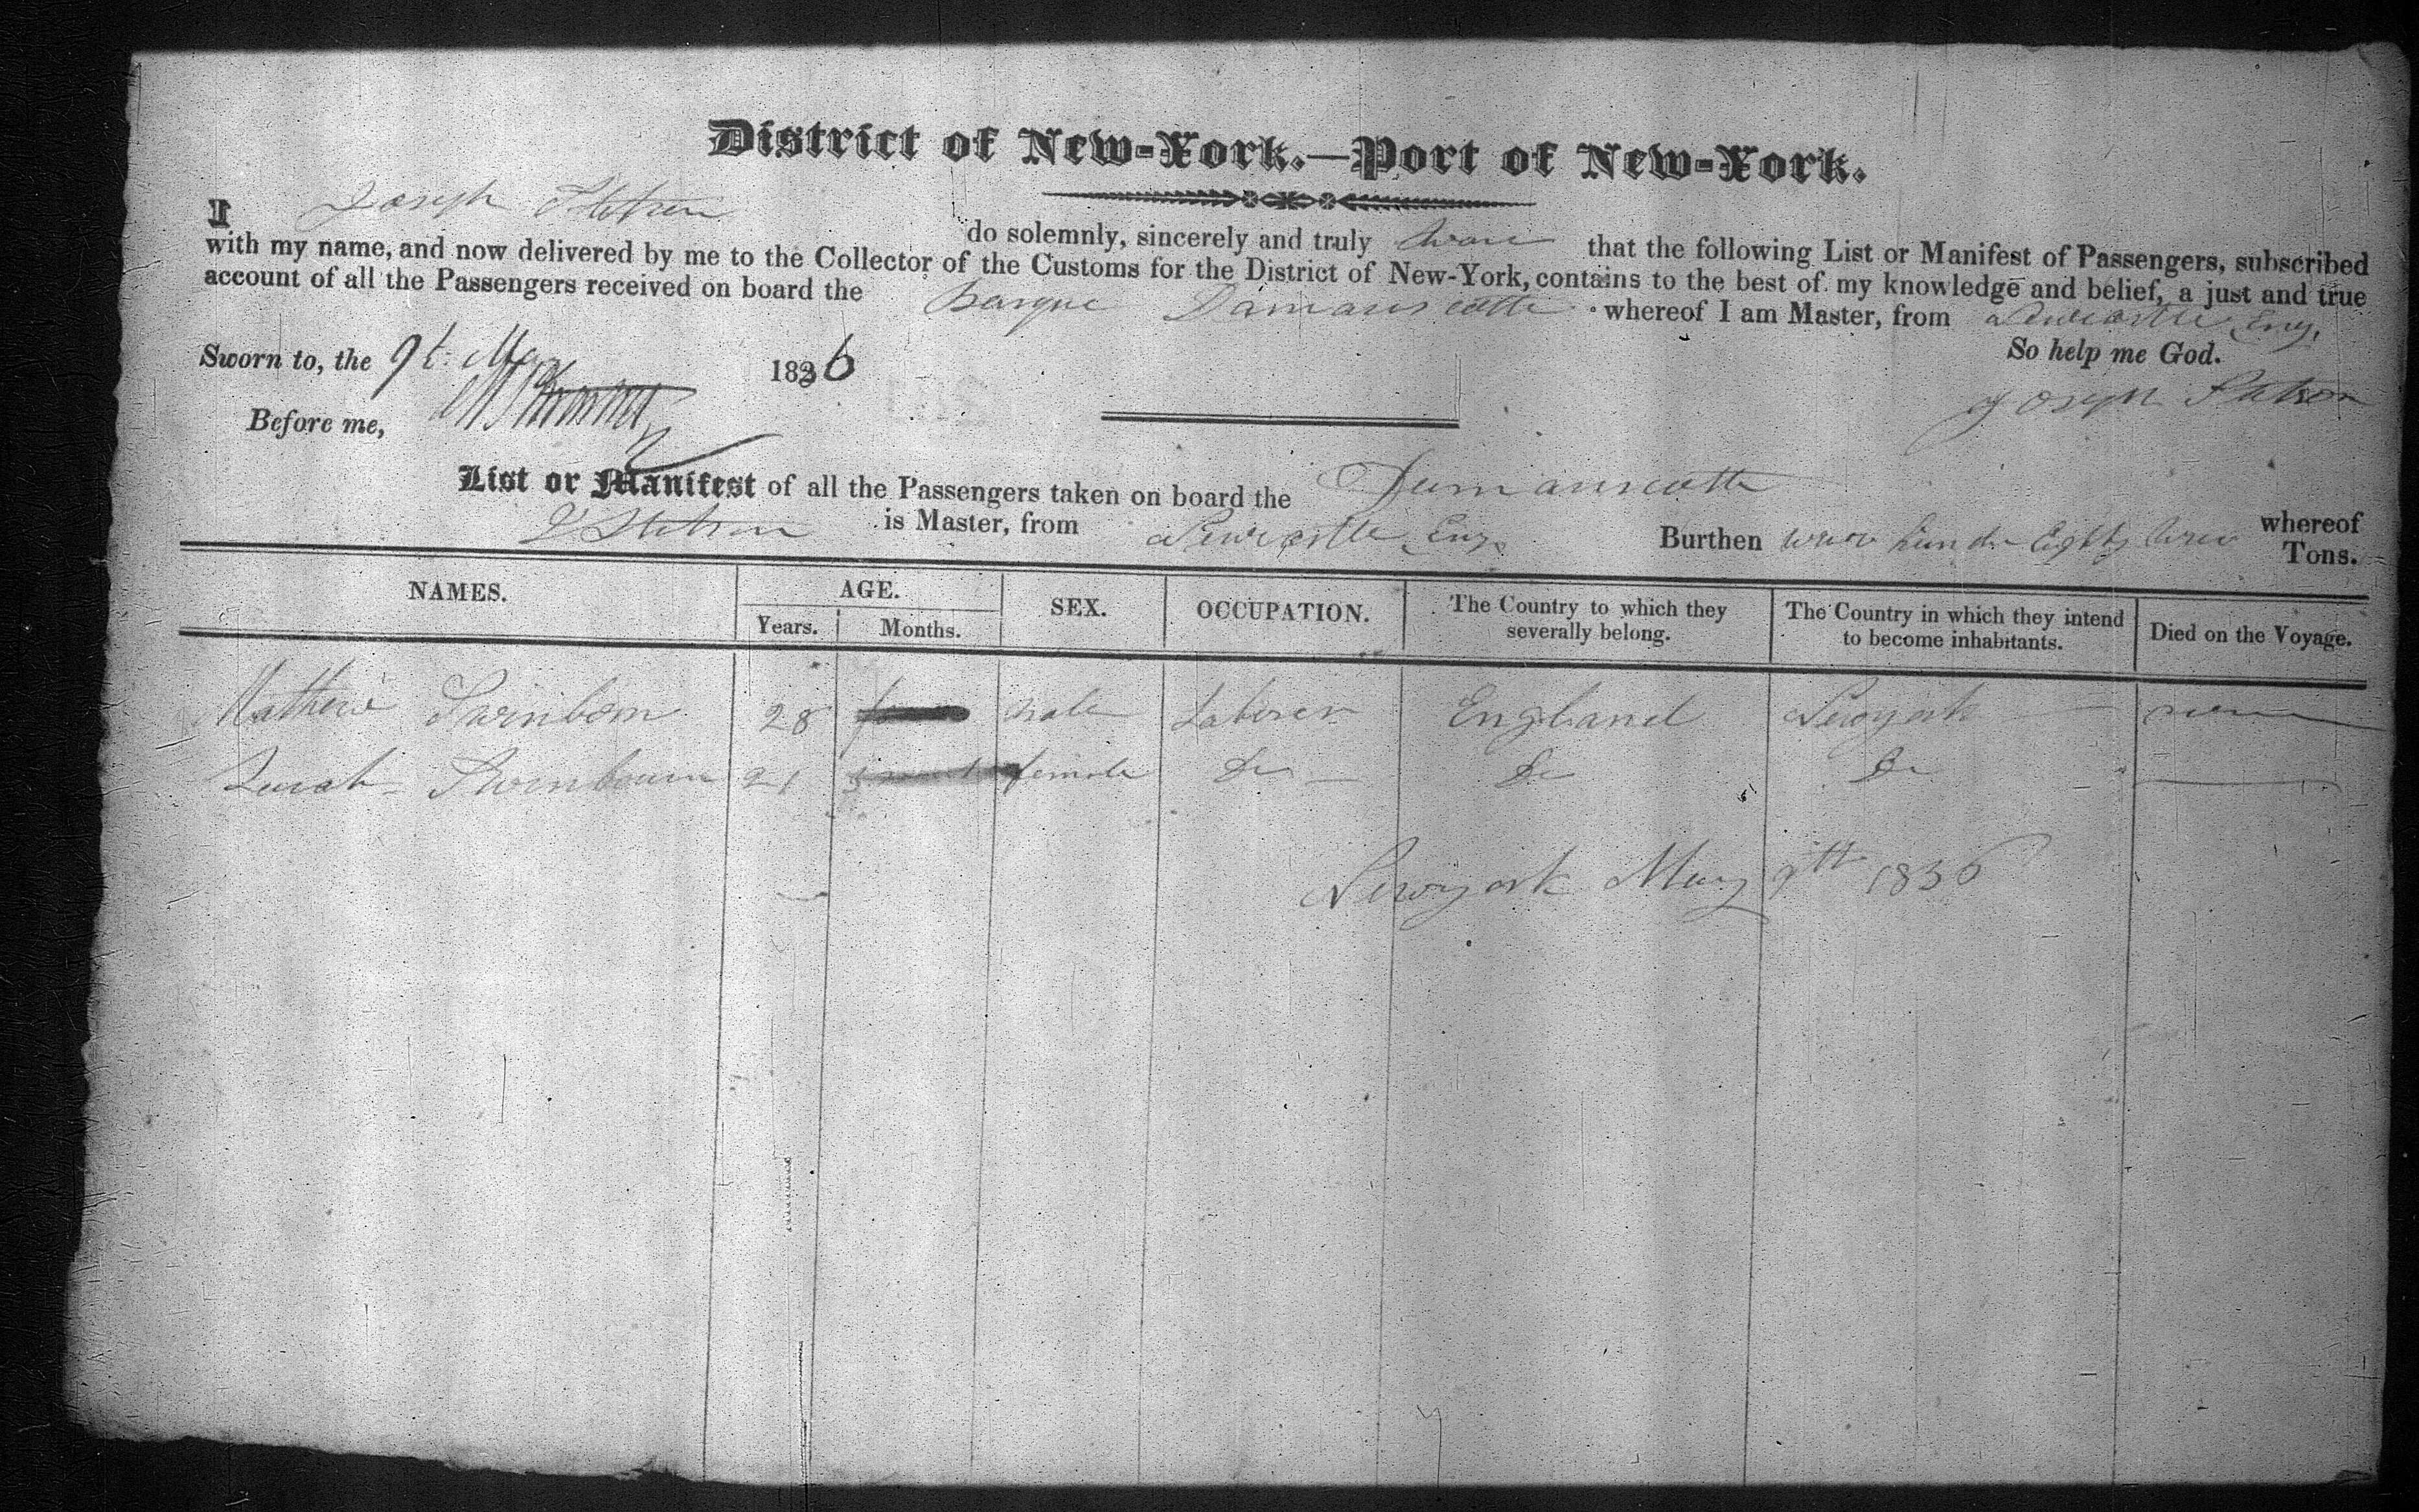 District of New-York.—Port of New-York.
I Joseph Stetson do solemnly, sincerely and truly swear that the following List or Manifest of Passengers, subscribed
with my name, and now delivered by me to the Collector of the Customs for the District of New-York, contains to the best of my knowledge and belief, a just and true
account of all the Passengers received on board the Barque Damariscotta whereof I am Master, from Newcastle Eng.
So help me God.
Sworn to, the 9t. May 1836
Joseph Stetson
Before me,
List or Manifest of all the Passengers taken on board the Damariscotta whereof
J Stetson is Master, from Newcastle Eng. Burthen Eighty Tons.
NAMES. AGE. SEX. OCCUPATION. The Country to which they severally belong. The Country in which they intend to become inhabitants. Died on the Voyage.
Years. Months.
Mathew 28 male Laborer England Newyork none
Sarah 21 female Do Do Do
Newyork May 9th 1836